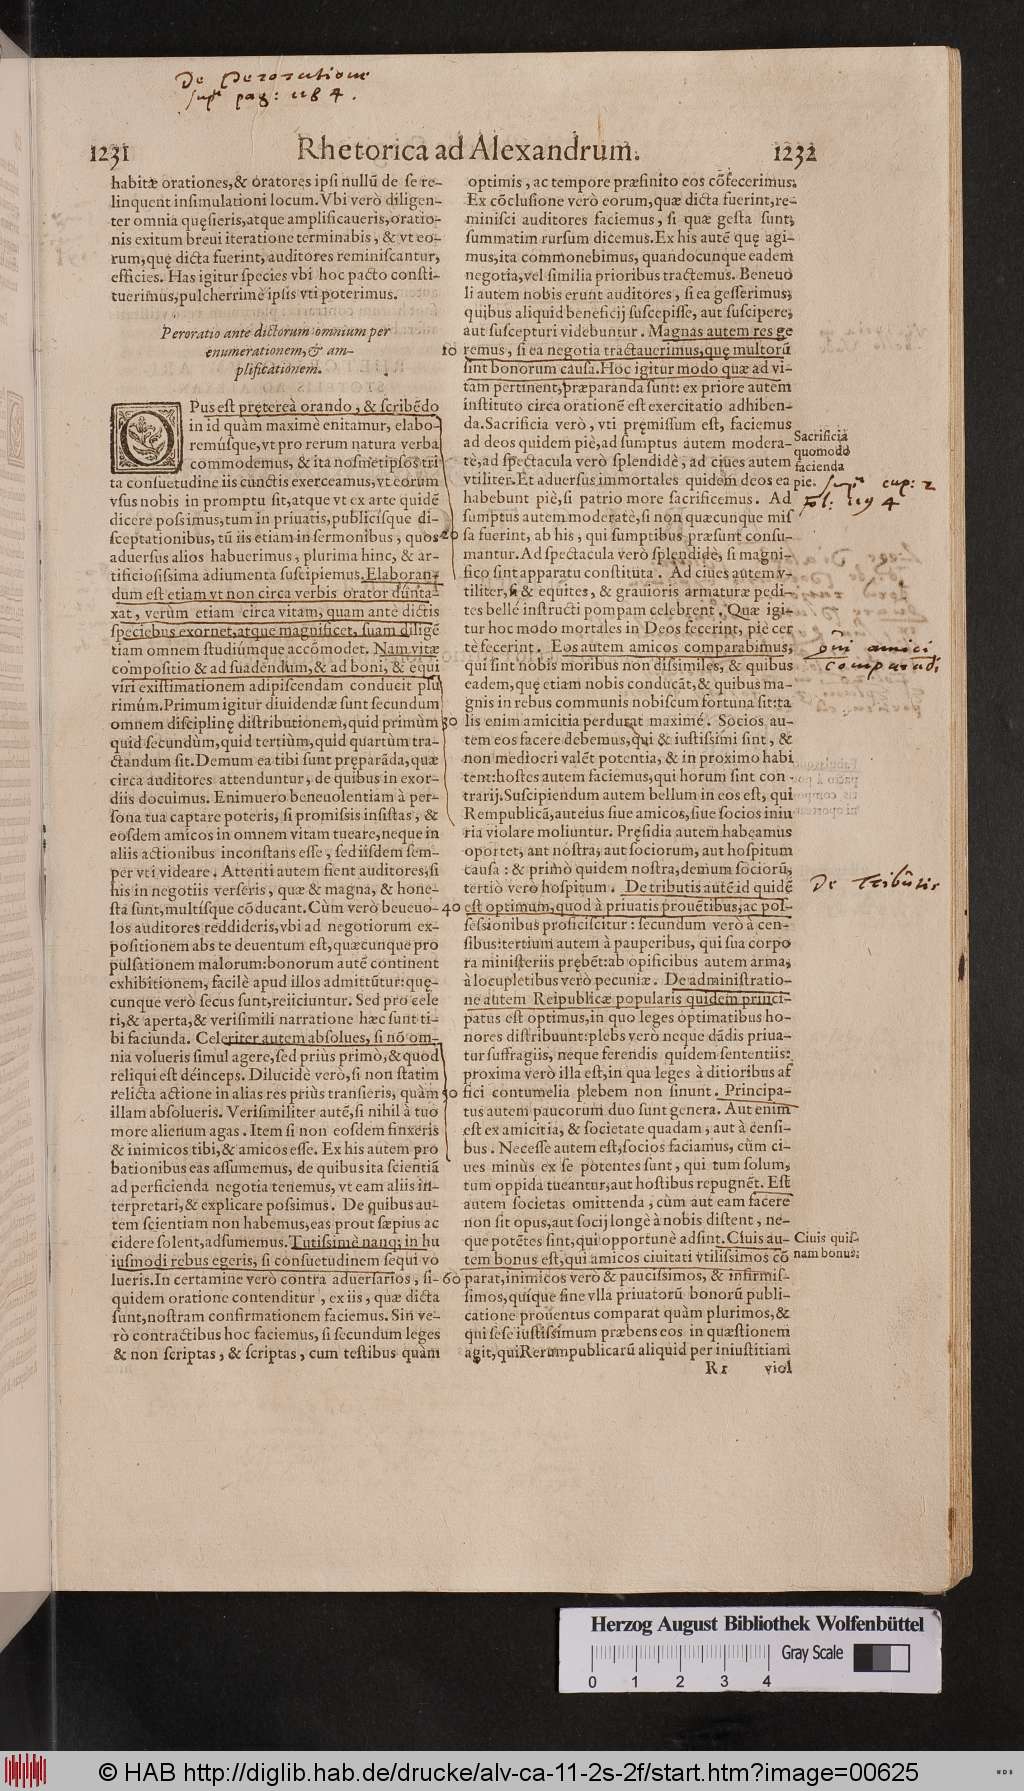 De Peroratione
supr pag: 1184.
1231 Rhetorica ad Alexandrum. 1232
habitæ orationes,& oratores ipſi nullũ de ſe re-
linquent inſimulationi locum. Vbi verò diligen-
ter omnia quęſieris,atque amplificaueris,oratio-
nis exitum breui iteratione terminabis, & vt eo-
rum,quę dicta fuerint, auditores reminiſcantur,
efficies. Has igitur ſpecies vbi hoc pacto conſti-
tuerimus,pulcherrimè ipſis vti poterimus.
Peroratio ante dictorum omnium per
enumerationem,& am-
plificationem.
OPus est pręterеà orando, & ſcribẽdo
in id quàm maximè enitamur, elabo-
remúſque,vt pro rerum natura verba
commodemus, & ita noſmetipſos tri
ta conſuetudine iis cunctis exerceamus,vt eorum
vſus nobis in promptu ſit,atque vt ex arte quidẽ
dicere poſsimus,tum in priuatis,publiciſque di-
ſceptationibus, tũ iis etiam in ſermonibus, quos
aduerſus alios habuerimus, plurima hinc, & ar-
tificioſiſsima adiumenta ſuſcipiemus. Elaboran-
dum est etiam vt non circa verbis orator dũnta-
xat, verùm etiam circa vitam, quam antè dictis
ſpeciebus exornet,atque magnificet, ſuam diligẽ
tiam omnem ſtudiúmque accõmodet. Nam vitæ
compoſitio & ad ſuadendum,& ad boni, & ęqui
viri exiſtimationem adipiſcendam conducit plu
rimùm. Primum igitur diuidendæ ſunt ſecundum
omnem diſciplinę diſtributionem,quid primùm
quid ſecundùm,quid tertiùm,quid quartùm tra-
ctandum ſit. Demum ea tibi ſunt pręparãda,quæ
circa auditores attenduntur, de quibus in exor-
diis docuimus. Enimuero beneuolentiam à per-
ſona tua captare poteris, ſi promiſsis inſiſtas, &
eoſdem amicos in omnem vitam tueare,neque in
aliis actionibus inconſtans eſſe, ſed iiſdem ſem-
per vti videare. Attenti autem fient auditores,ſi
his in negotiis verſeris, quæ & magna, & hone-
ſta ſunt,multiſque cõducant. Cùm verò beueuo-
los auditores reddideris,vbi ad negotiorum ex-
poſitionem abs te deuentum est,quæcunque pro
pulſationem malorum:bonorum autẽ continent
exhibitionem, facilè apud illos admittũtur:quę-
cunque verò ſecus ſunt,reiiciuntur. Sed pro cele
ri,& aperta,& veriſimili narratione hæc ſunt ti-
bi faciunda. Celeriter autem abſolues, ſi nõ om-
nia volueris ſimul agere,ſed priùs primò,& quod
reliqui est déinceps. Dilucidè verò,ſi non ſtatim
relicta actione in alias res priùs tranſieris, quàm
illam abſolueris. Veriſimiliter autẽ,ſi nihil à tuo
more alienum agas. Item ſi non eoſdem finxeris
& inimicos tibi,& amicos eſſe. Ex his autem pro
bationibus eas aſſumemus, de quibus ita ſcientiã
ad perficienda negotia tenemus, vt eam aliis in-
terpretari,& explicare poſsimus. De quibus au-
tem ſcientiam non habemus,eas prout ſæpius ac
cidere ſolent,adſumemus. Tutiſsimè nanq; in hu
iuſmodi rebus egeris, ſi conſuetudinem ſequi vo
lueris. In certamine verò contra aduerſarios, ſi-
quidem oratione contenditur, ex iis, quæ dicta
ſunt,noſtram confirmationem faciemus. Sin ve-
rò contractibus hoc faciemus, ſi ſecundum leges
& non ſcriptas, & ſcriptas, cum teſtibus quàm
10
20
30
40
50
60
optimis, ac tempore præfinito eos cõfecerimus.
Ex cõcluſione verò eorum,quæ dicta fuerint,re-
miniſci auditores faciemus, ſi quæ geſta ſunt,
ſummatim rurſum dicemus. Ex his autẽ quę agi-
mus,ita commonebimus, quandocunque eadem
negotia,vel ſimilia prioribus tractemus. Beneuo
li autem nobis erunt auditores, ſi ea geſſerimus,
quibus aliquid beneficij ſuſcepiſſe, aut ſuſcipere,
aut ſuſcepturi videbuntur. Magnas autem res ge
remus, ſi ea negotia tractauerimus,quę multorũ
ſint bonorum cauſa. Hoc igitur modo quæ ad vi-
tam pertinent,præparanda ſunt: ex priore autem
inſtituto circa orationẽ est exercitatio adhiben-
da. Sacrificia verò, vti pręmiſſum est, faciemus
ad deos quidem piè,ad ſumptus autem modera-
tè,ad ſpectacula verò ſplendidè, ad ciues autem
vtiliter. Et aduerſus immortales quidem deos ea
habebunt piè,ſi patrio more ſacrificemus. Ad
ſumptus autem moderatè,ſi non quæcunque miſ
ſa fuerint, ab his, qui ſumptibus præſunt conſu-
mantur. Ad ſpectacula verò ſplendidè, ſi magni-
fico ſint apparatu conſtituta. Ad ciues autem v-
tiliter, ſi & equites, & grauioris armaturæ pedi-
tes bellè inſtructi pompam celebrent. Quæ igi-
tur hoc modo mortales in Deos fecerint, piè cer
tè fecerint. Eos autem amicos comparabimus,
qui ſint nobis moribus non diſsimiles, & quibus
eadem,quę etiam nobis conducãt,& quibus ma-
gnis in rebus communis nobiſcum fortuna ſit:ta
lis enim amicitia perdurat maximè. Socios au-
tem eos facere debemus,qui & iuſtiſsimi ſint, &
non mediocri valẽt potentia, & in proximo habi
tent:hoſtes autem faciemus,qui horum ſint con-
trarij. Suſcipiendum autem bellum in eos est, qui
Rempublicã,aut eius ſiue amicos,ſiue ſocios iniu
ria violare moliuntur. Pręſidia autem habeamus
oportet, aut noſtra, aut ſociorum, aut hoſpitum
cauſa: & primò quidem noſtra,demum ſociorũ,
tertiò verò hoſpitum. De tributis autẽ id quidẽ
est optimum,quod à priuatis prouẽtibus,ac poſ-
ſeſsionibus proficiſcitur: ſecundum verò à cen-
ſibus:tertium autem à pauperibus, qui ſua corpo
ra miniſteriis prębẽt:ab opificibus autem arma,
à locupletibus verò pecuniæ. De adminiſtratio-
ne autem Reipublicæ popularis quidem princi-
patus est optimus,in quo leges optimatibus ho-
nores diſtribuunt:plebs verò neque dãdis priua-
tur ſuffragiis, neque ferendis quidem ſententiis:
proxima verò illa est,in qua leges à ditioribus af
fici contumelia plebem non ſinunt. Principa-
tus autem paucorum duo ſunt genera. Aut enim
est ex amicitia, & ſocietate quadam, aut à cenſi-
bus. Neceſſe autem est,ſocios faciamus, cùm ci-
ues minùs ex ſe potentes ſunt, qui tum ſolum,
tum oppida tueantur,aut hoſtibus repugnẽt. Est
autem ſocietas omittenda, cùm aut eam facere
non ſit opus,aut ſocij longè à nobis diſtent, ne-
que potẽtes ſint,qui opportunè adſint. Ciuis au-
tem bonus est,qui amicos ciuitati vtiliſsimos cõ
parat,inimicos verò & pauciſsimos, & infirmiſ-
ſimos,quíque ſine vlla priuatorũ bonorũ publi-
catione prouentus comparat quàm plurimos,&
qui ſeſe iuſtiſsimum præbens eos in quæſtionem
agit,qui Rerumpublicarũ aliquid per iniuſtitiam
Rr viol
Sacrificia
quomodo
facienda
pie.
supr cap: 2
fol: 1194
qui amici
comparadi
De Tributis
Ciuis quiſ-
nam bonus.
Herzog August Bibliothek Wolfenbüttel
Gray Scale
0 1 2 3 4
© HAB http://diglib.hab.de/drucke/alv-ca-11-2s-2f/start.htm?image=00625